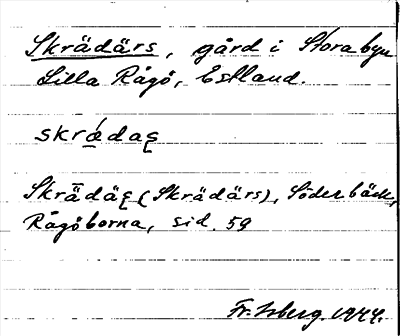 Skrädärs, gård i Stora byn
Lilla Rågö, Estland.
skrǽdaꞔ
Skrädäꞔ (Skrädärs), Söderbäck,
Rågöborna, sid. 59
Fr. Isberg. 1944.